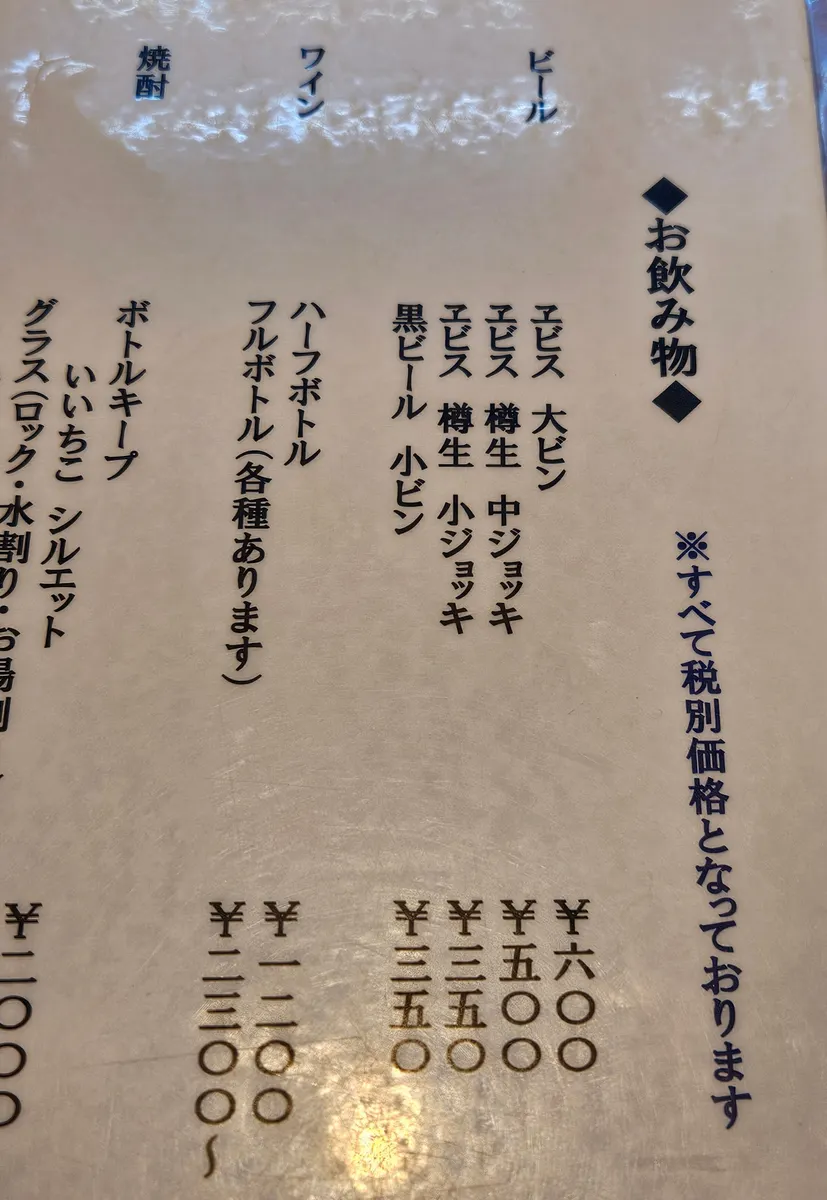 ◆お飲み物◆ ※すべて税別価格となっております
ビール
ヱビス 大ビン ¥六〇〇
ヱビス 樽生 中ジョッキ ¥五〇〇
ヱビス 樽生 小ジョッキ ¥三五〇
黒ビール 小ビン ¥三五〇
ワイン
ハーフボトル ¥一二〇〇
フルボトル(各種あります) ¥二三〇〇〜
焼酎
ボトルキープ
いいちこ シルエット ¥二〇〇〇
グラス(ロック・水割り・お湯割